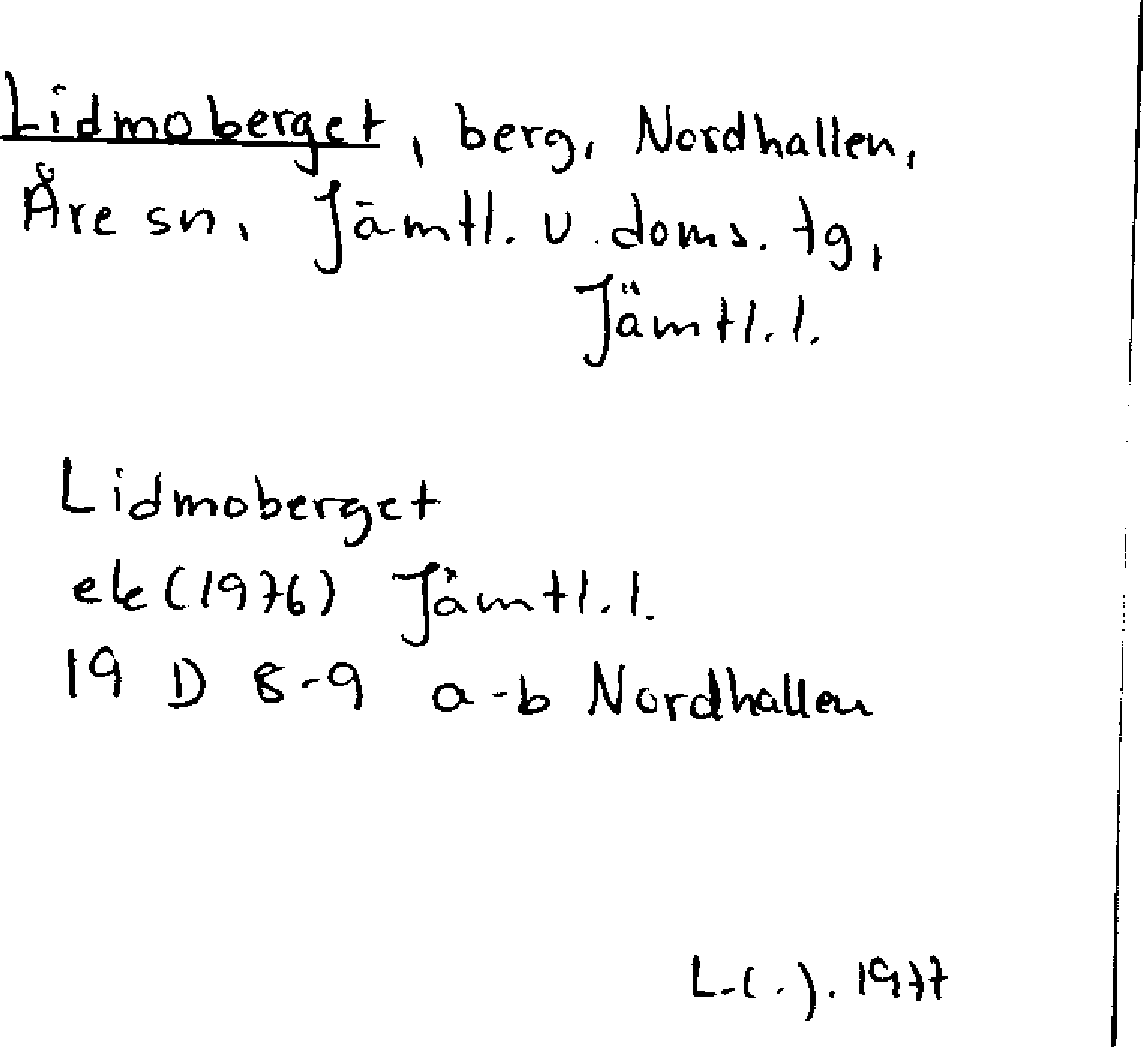 Lidmoberget, berg, Nordhallen,
Åre sn, Jämtl. v. doms. tg,
Jämtl. l.
Lidmoberget
ek (1976) Jämtl. l.
19 D 8-9 a-b Nordhallen
1977